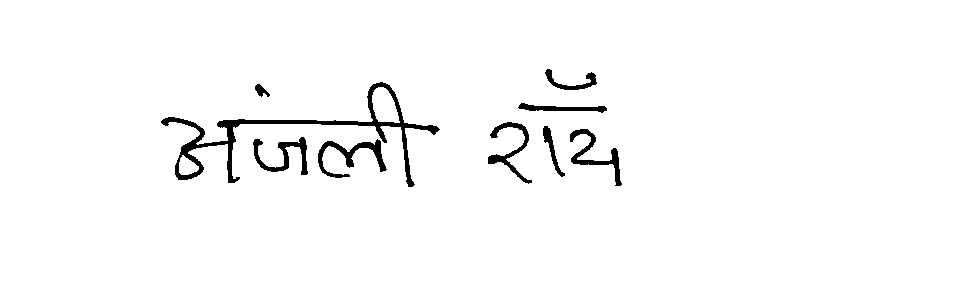 अंजली रॉय